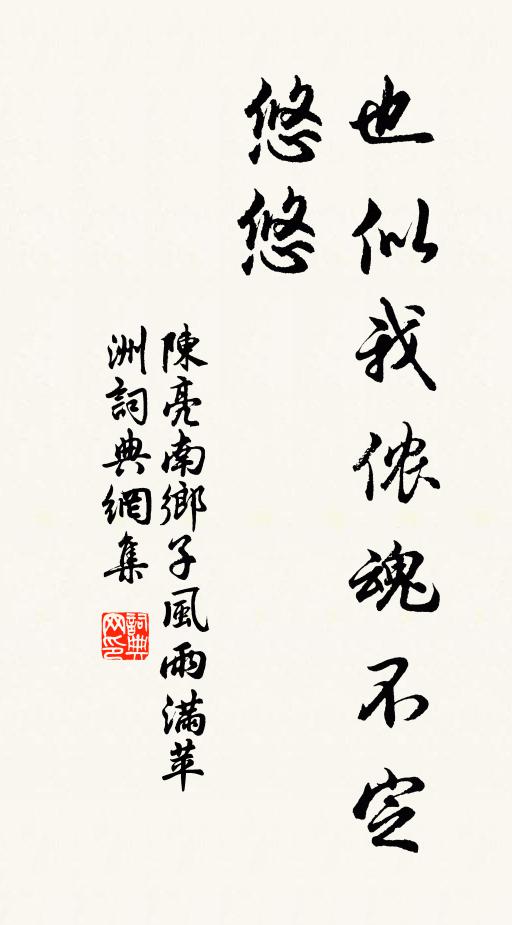 也似我侬魂不定
悠悠
陳亮南鄉子風雨满苹
洲詞典網集
詞典网印